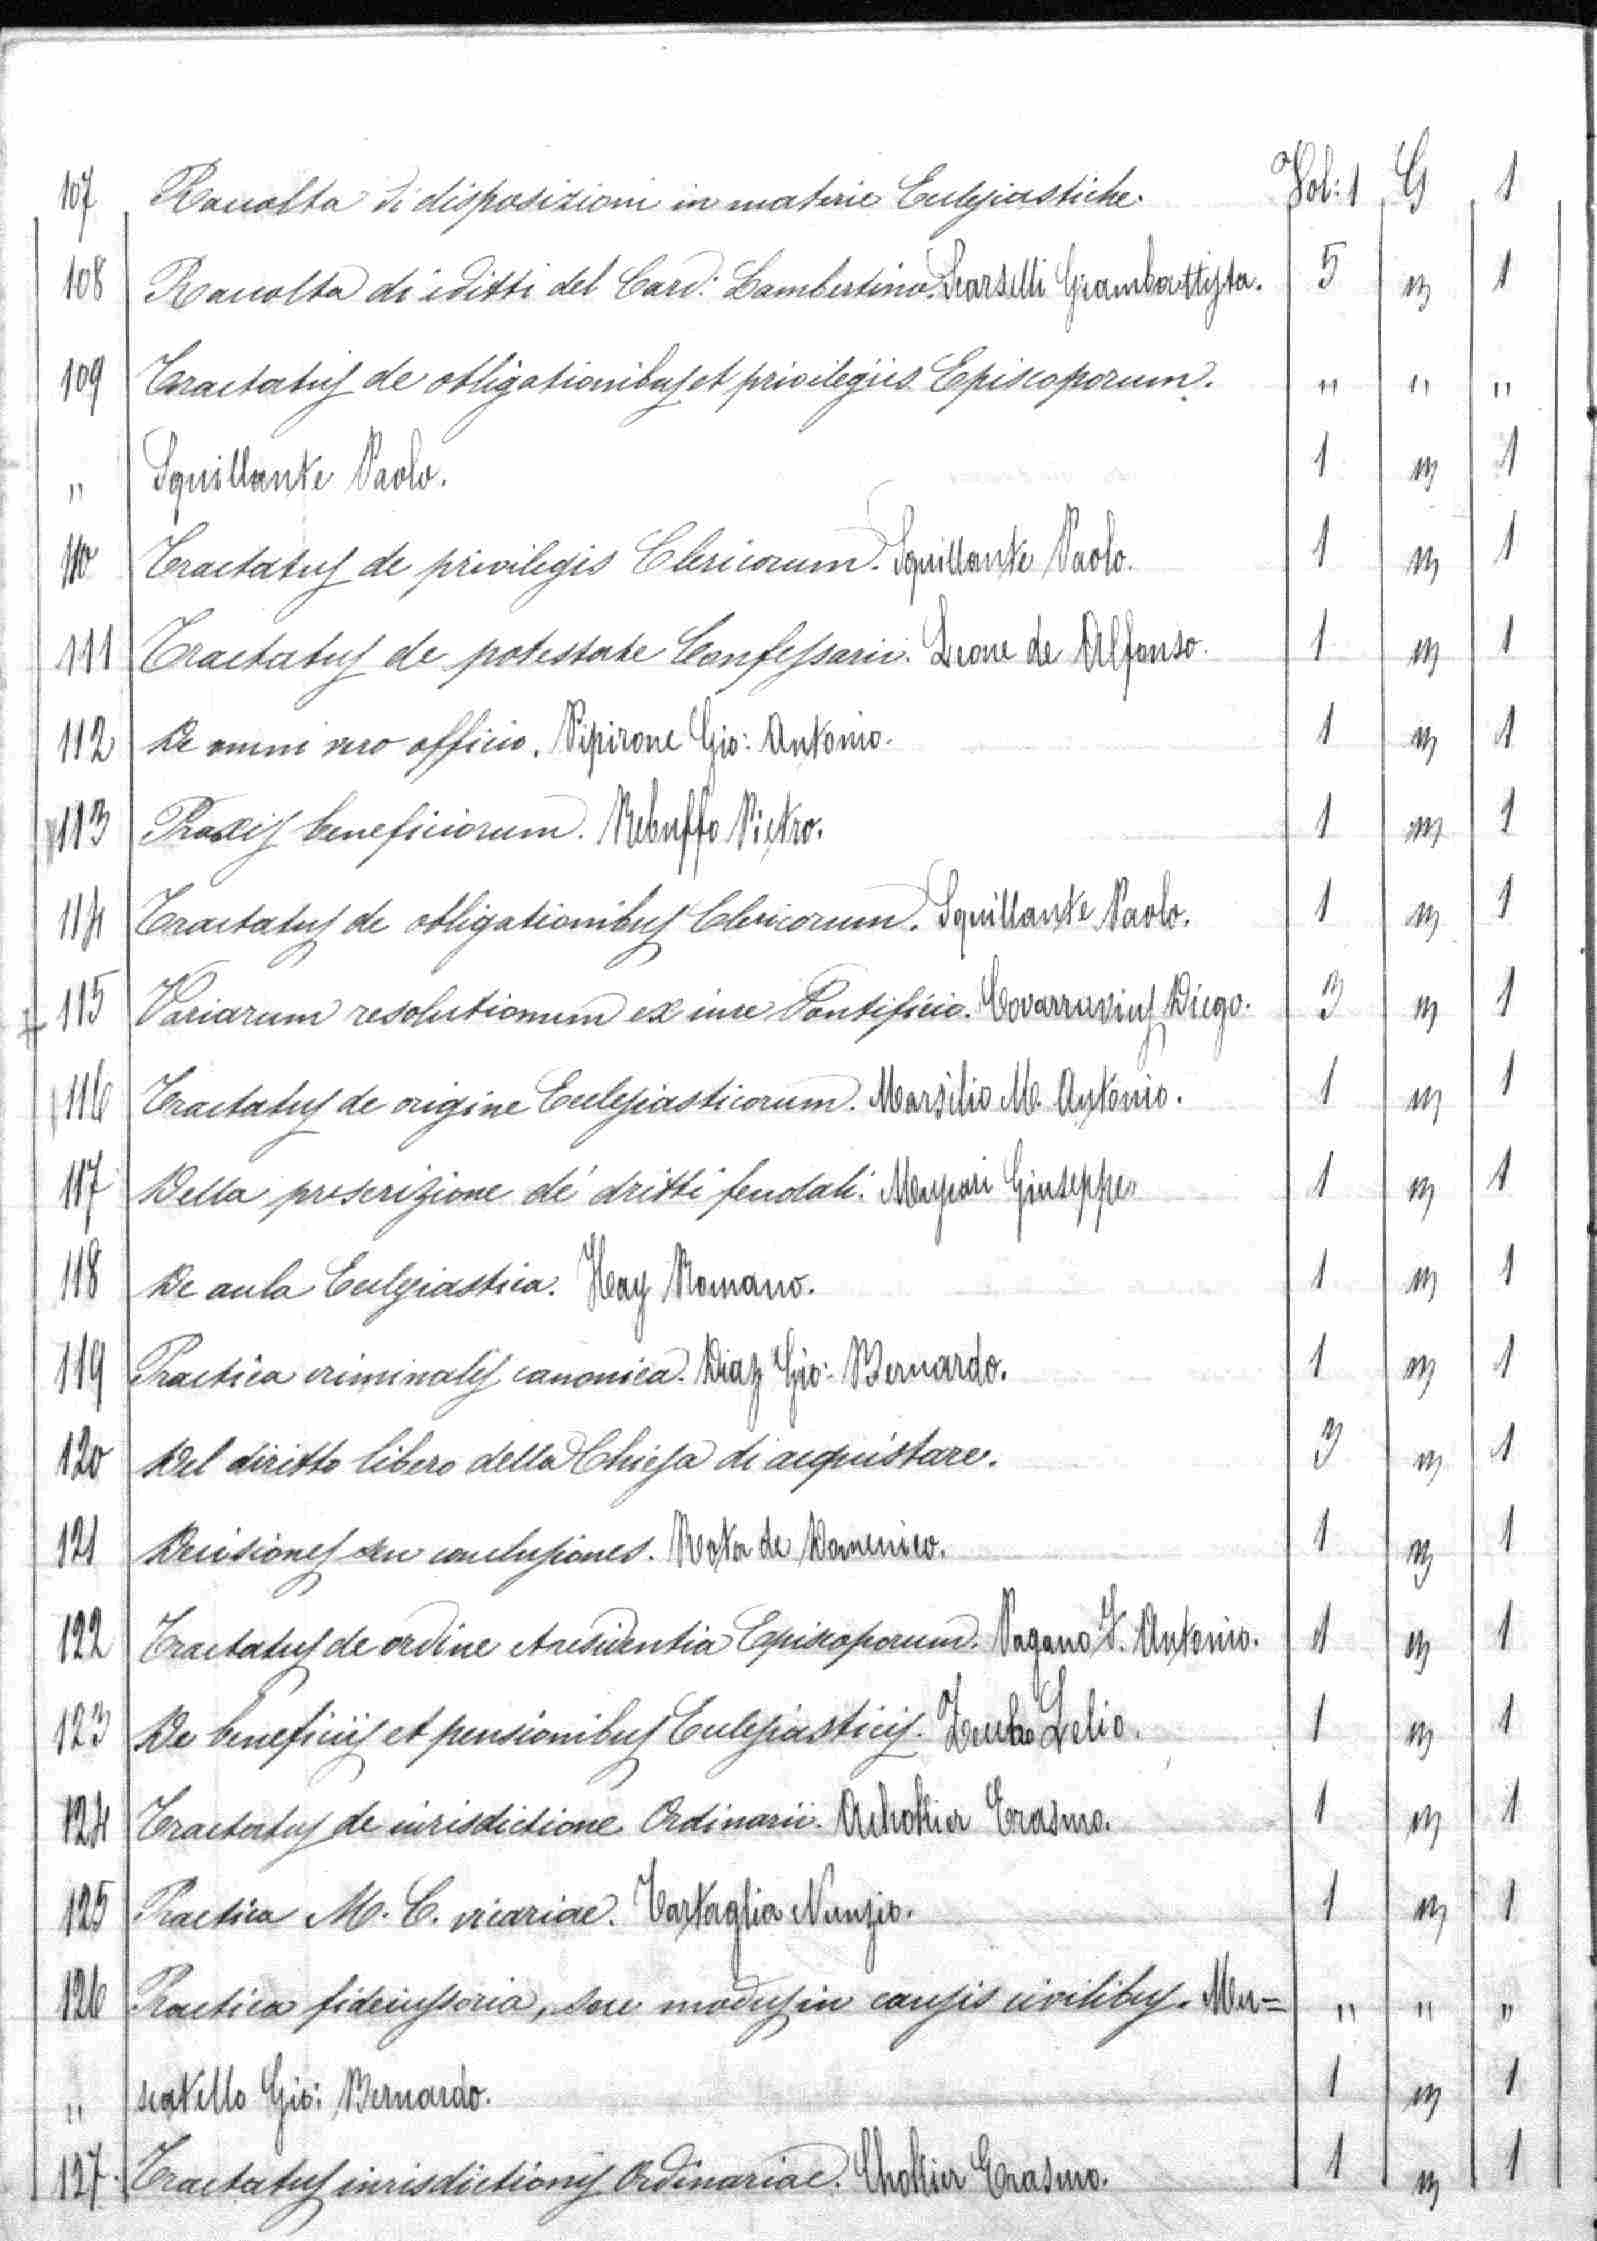 107 Raccolta di disposizioni in materie Ecclesiastiche. Vol: 1 G 1
108 Raccolta di editti del Card: Lambertino. Scarselli Giambattista. 5 " 1
109 Tractatus de obligationibus et privilegiis Episcoporum. " " "
" Squillante Paolo. 1 " 1
110 Tractatus de privilegis Clericorum. Squillante Paolo. 1 " 1
111 Tractatus de potestate Confessarii. Leone de Alfonso. 1 " 1
112 De omni vero officio. Pipirone Gio: Antonio. 1 " 1
113 Praxis beneficiorum. Rebuffo Pietro. 1 " 1
114 Tractatus de obligationibus Clericorum. Squillante Paolo. 1 " 1
115 Variarum resolutionum ex iure Pontificio. Covarruvius Diego. 3 " 1
116 Tractatus de origine Ecclesiasticorum. Marsilio M. Antonio. 1 " 1
117 Della prescrizione de' dritti feudali. Giuseppe 1 " 1
118 De aula Ecclesiastica. Hay Romano. 1 " 1
119 Practica criminalis canonica. Diaz Gio: Bernardo. 1 " 1
120 Del diritto libero della Chiesa di acquistare. 3 " 1
121 Decisiones seu conclusiones. Rota de Domenico. 1 " 1
122 Tractatus de ordine et residentia Episcoporum. Pagano F. Antonio. 1 " 1
123 De beneficiis et pensionibus Ecclesiasticis. Zecho Lelio. 1 " 1
124 Tractatus de iurisdictione Ordinarii. Achokier Erasmo. 1 " 1
125 Practica M. C. vicariae. Tartaglia Nunzio. 1 " 1
126 Practica fideiussoria, seu modus in causis civilibus. Mu= " " "
" scatello Gio: Bernardo. 1 " 1
127 Tractatus iurisdictionis Ordinariae. Chokier Erasmo. 1 " 1